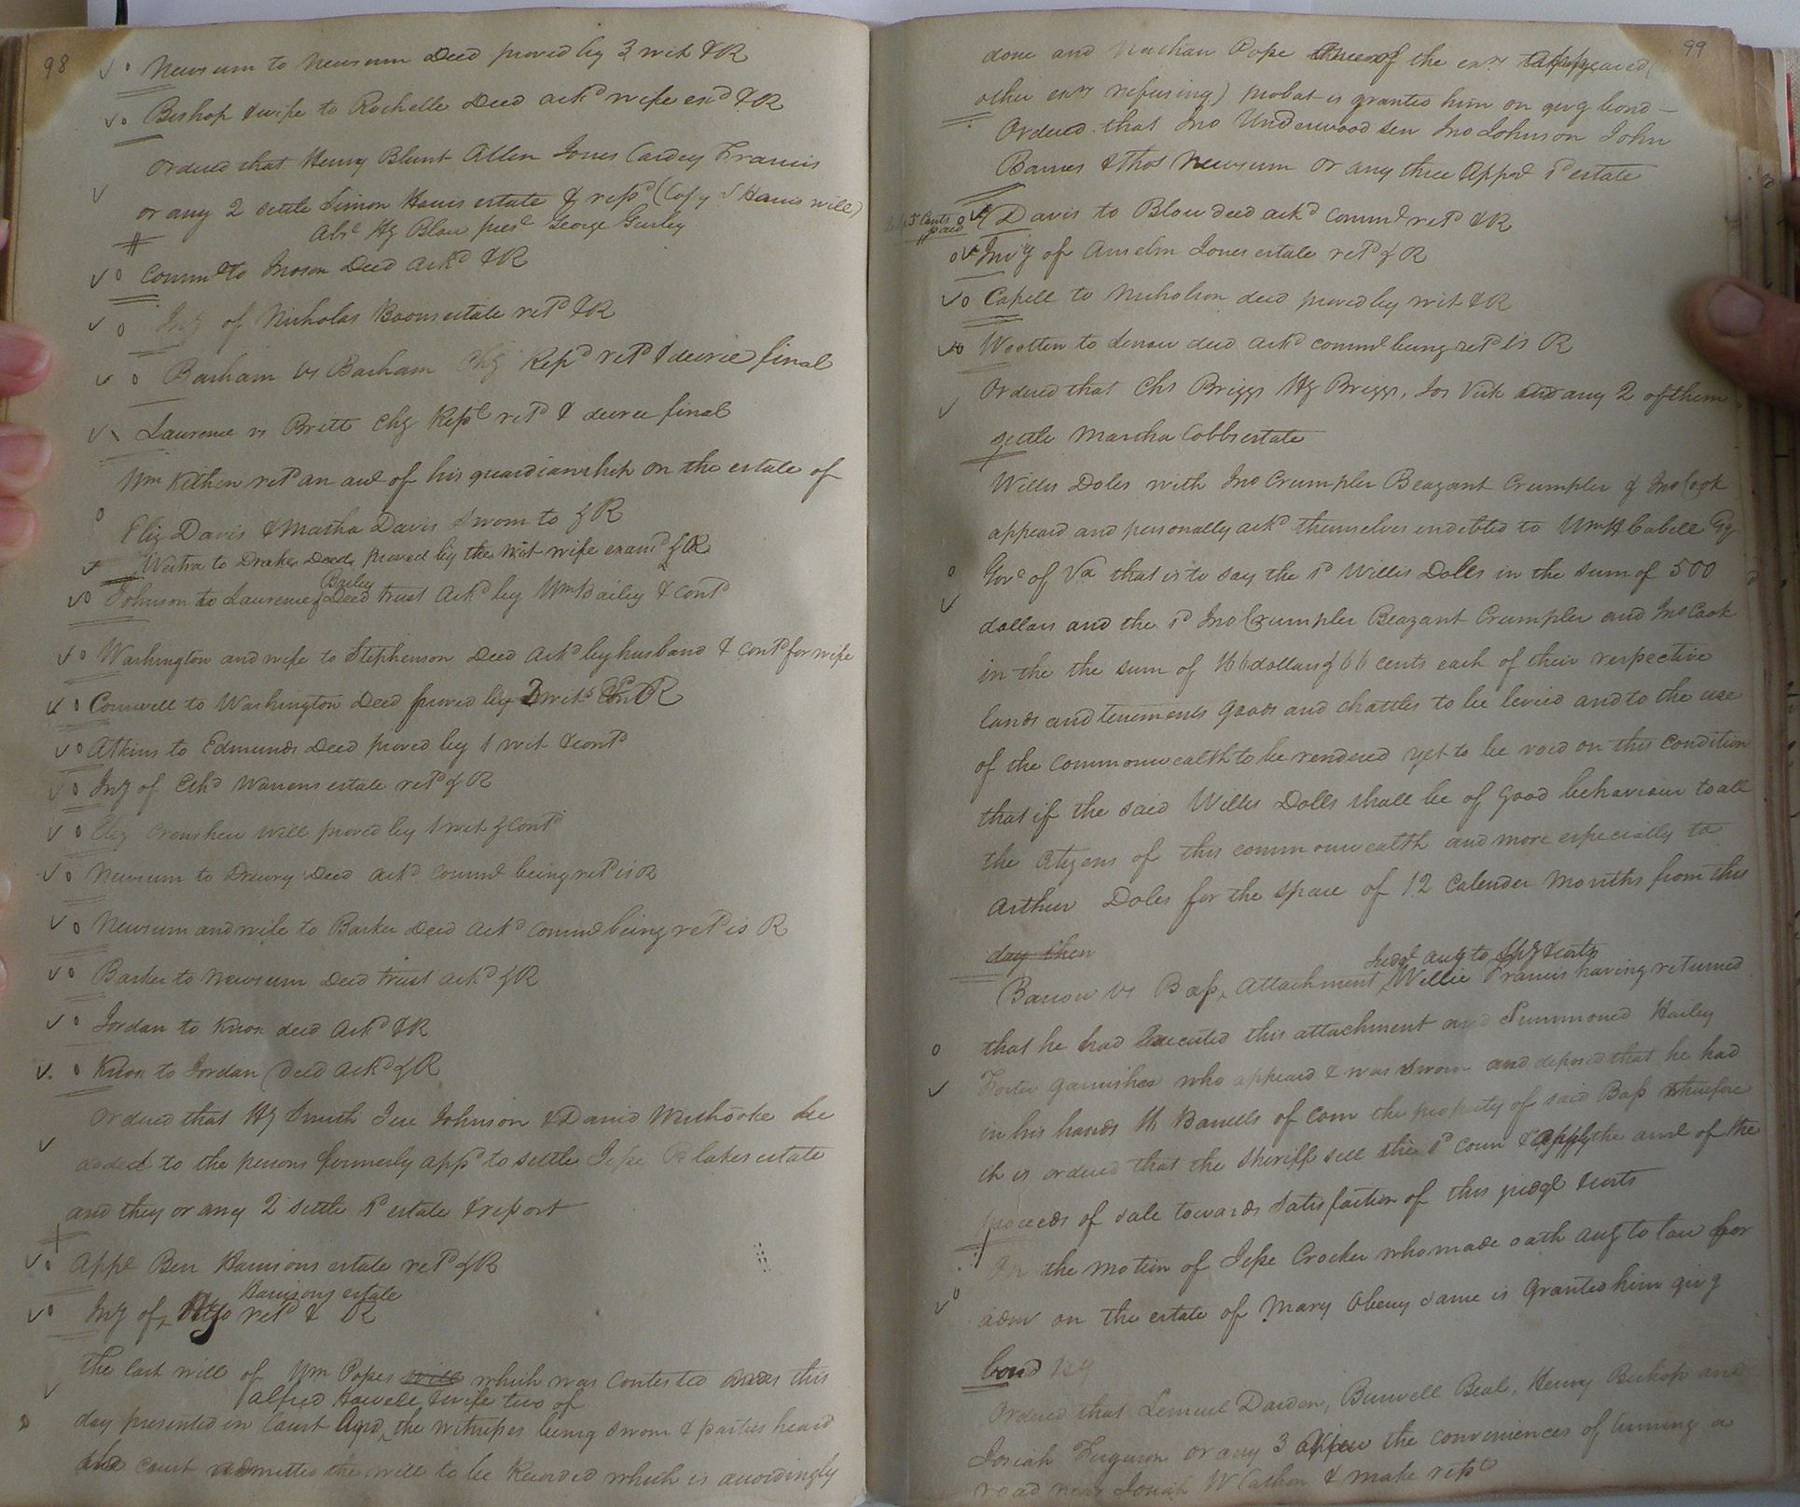 98
Newsum to Newsum Deed proved by 3 wit & R
Bishop & wife to Rochelle Deed ackd wife exd & R
Ordered that Henry Blunt Allen Jones Cordey Francis
or any 2 settle Simon Harris estate & repd (Copy Harris will)
Absl Hy Blow presl George Gurley
Comml to Inoson Deed ackd & R
Invy of Nicholas Boons estate retd & R
Barham vs Barham Chy Repd retd & decree final
Laurence vs Britt Chy Repl retd & decree final
Wm Kithen retd an acct of his guardianship on the estate of
Eliz Davis & Martha Davis Sworn to & R
Westra to Drake Deed proved by the wit wife examd & R
Bailey
Johnson to Laurence & Deed trust ackd by Wm Bailey & contd
Washington and wife to Stephenson Deed ackd by husband & contd for wife
Cornwell to Washington Deed proved by 2 wits & R
Atkins to Edmunds Deed proved by 1 wit & contd
Invy of Ethd Warrens estate retd & R
Eliz Crenshew will proved by 1 wit & contd
Newsum to Drewry Deed ackd comml being retd is R
Newsum and wife to Barker Deed ackd comml being retd is R
Barker to Newsum Deed trust ackd & R
Jordan to Knox deed ackd & R
Knox to Jordan Deed ackd & R
Ordered that Hy Smith Jere Johnson & David Westbrooke be
added to the persons formerly appd to settle Jesse Blakes estate
and they or any 2 settle sd estate & report
Appt Ben Harrisons estate retd & R
Harrisons estate
Invy of retd & R
The last will of Wm Popes will which was contested was this
Alfred Howell & wife two of
day presented in Court And the witnesses being sworn & parties heard
the court admitted the will to be Recorded which is accordingly
99
done and Nathan Pope of the exrs appeared (
other exrs refusing) probat is granted him on givg bond —
Ordered that Jno Underwood Sen Jno Johnson John
Barnes & Thos Newsum or any three Appd sd estate
5 Cents paid
Davis to Blow deed ackd comml retd & R
Invy of Anselm Jones estate retd & R
Capell to Nicholson deed proved by wit & R
Wootten to Lenow deed ackd comml being retd is R
Ordered that Chs Briggs Hy Briggs, Jos Vick and any 2 of them
settle Martha Cobbs estate
Willis Doles with Jno Crumpler Beazant Crumpler & Jno Cook
appeard and personally ackd themselves indebted to Wm H Cabell Esq
Govr of Va that is to say the sd Willis Dolls in the sum of 500
dollars and the sd Jno Crumpler Beazant Crumpler and Jno Cook
in the the sum of 166 dollars & 66 cents each of their respective
lands and tenements goods and chattles to be levied and to the use
of the commonwealth to be rendered yet to be void on this condition
that if the said Willis Dolls shall be of good behaviour to all
the Citizens of this commonwealth and more especially to
Arthur Doles for the space of 12 Calender Months from this
day then
Judgt accg to Spy & costs
Barrow vs Bass, Attachment, Willie Francis having returned
that he had Executed this attachment and Summoned Hailey
Foster garnishee who appeard & was sworn and deposed that he had
in his hands 16 Barrells of corn the property of said Bass therefore
it is ordered that the Sheriff sell the sd corn & apply the amt of the
proceeds of sale towards satisfaction of this judgt & costs
On the motion of Jesse Crocker who made oath accg to law for
adm on the estate of Mary Obery same is Granted him givg
bond
Ordered that Lemuel Darden, Burwell Beal, Henry Bishop and
Josiah Ferguson or any 3 of the conveniences of turning a
road near Jonah W Cathon & make retd